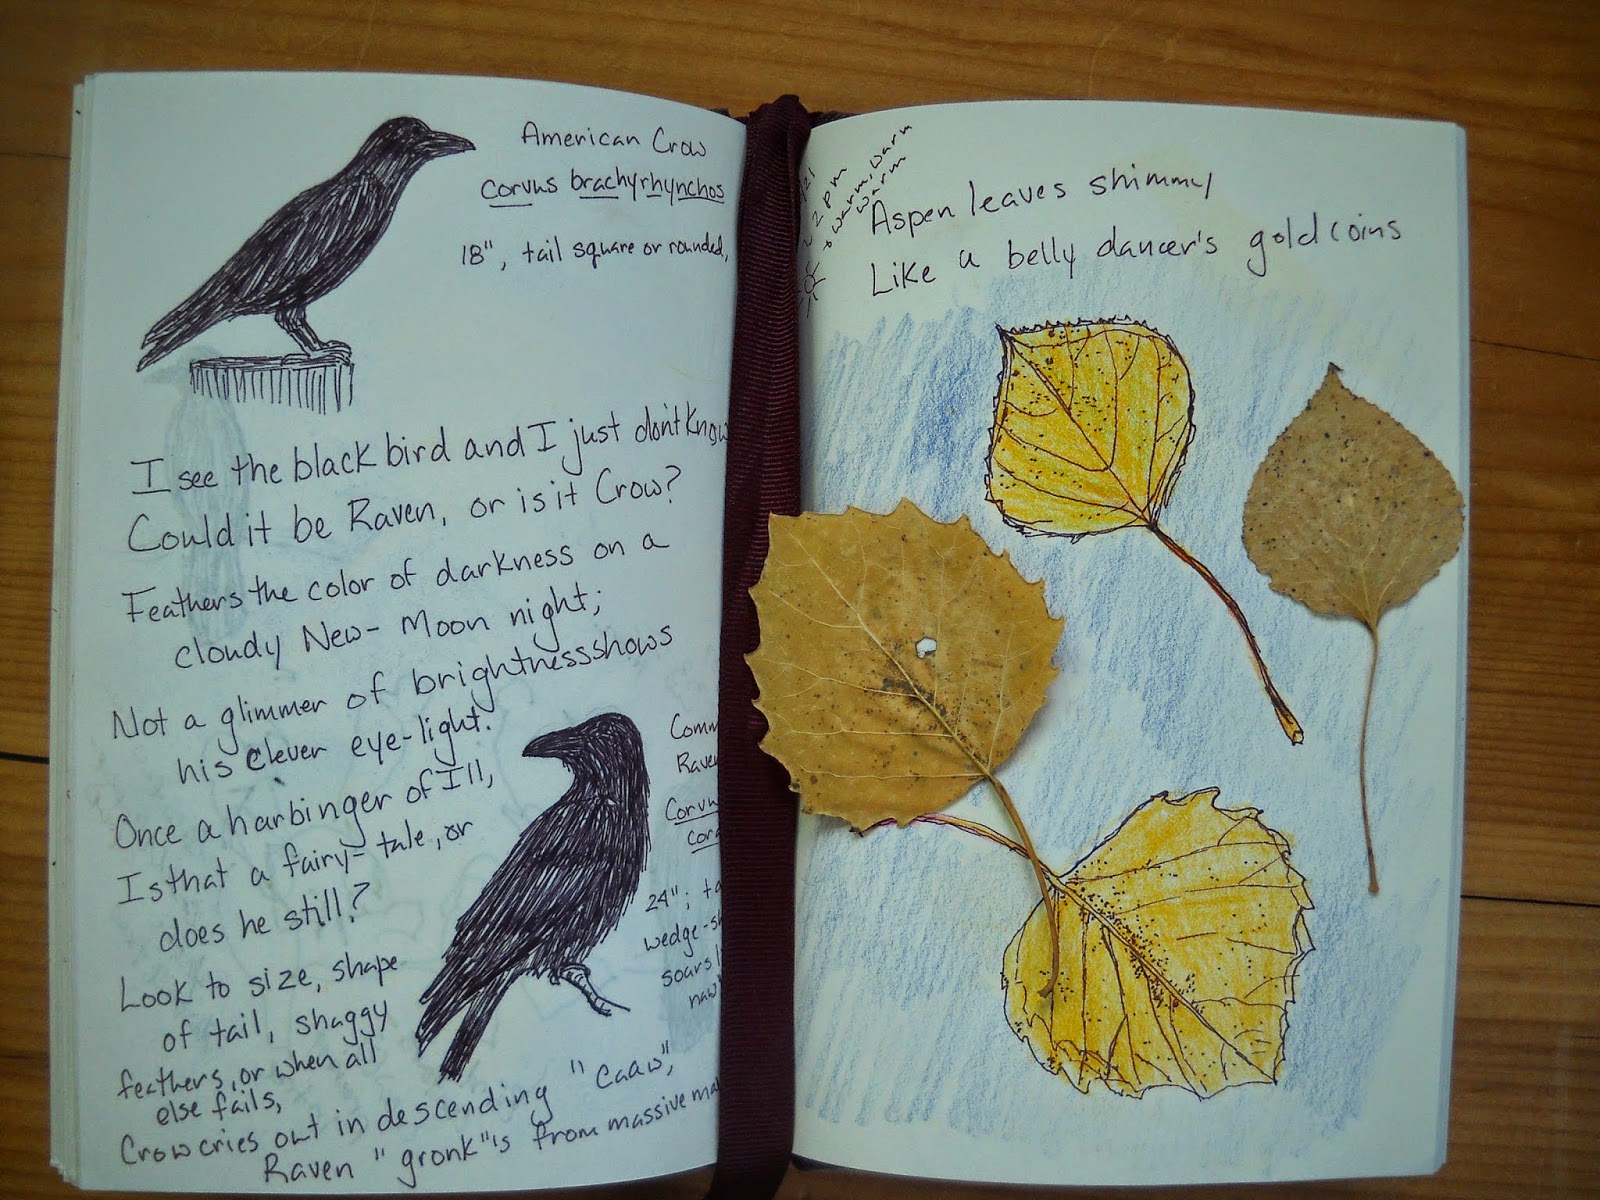 American Crow
corvus brachyrhynchos
18", tail square or rounded,
I see the black bird and I just don't know
Could it be Raven, or is it Crow?
Feathers the color of darkness on a
cloudy New-Moon night;
Not a glimmer of brightness shows
his clever eye-light.
Once a harbinger of Ill,
Is that a fairy-tale, or
does he still?
Look to size, shape
of tail, shaggy
feathers, or when all
else fails,
Crow cries out in descending "caaw",
Raven "gronk"'s from massive
Raven
24";
wedge-
soars
2pm
warm, warm
warm
Aspen leaves shimmy
Like a belly dancer's gold coins